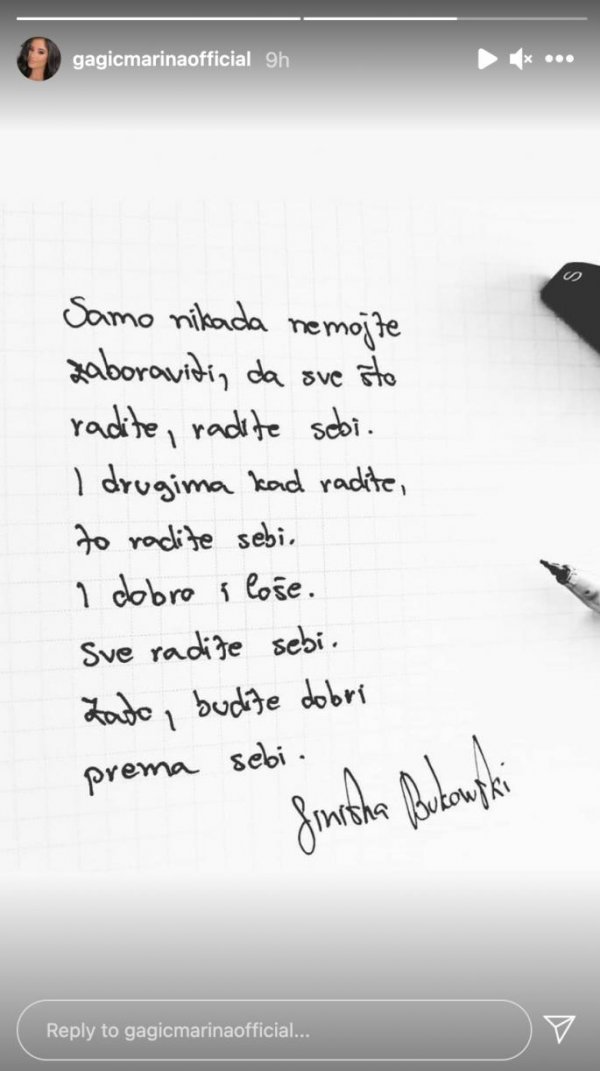 gagicmarinaofficial 9h
Samo nikada nemojte
zaboraviti, da sve što
radite, radite sebi.
I drugima kad radite,
to radite sebi.
I dobro i loše.
Sve radite sebi.
Zato, budite dobri
prema sebi.
Sinisha Bukowski
S
Reply to gagicmarinaofficial...